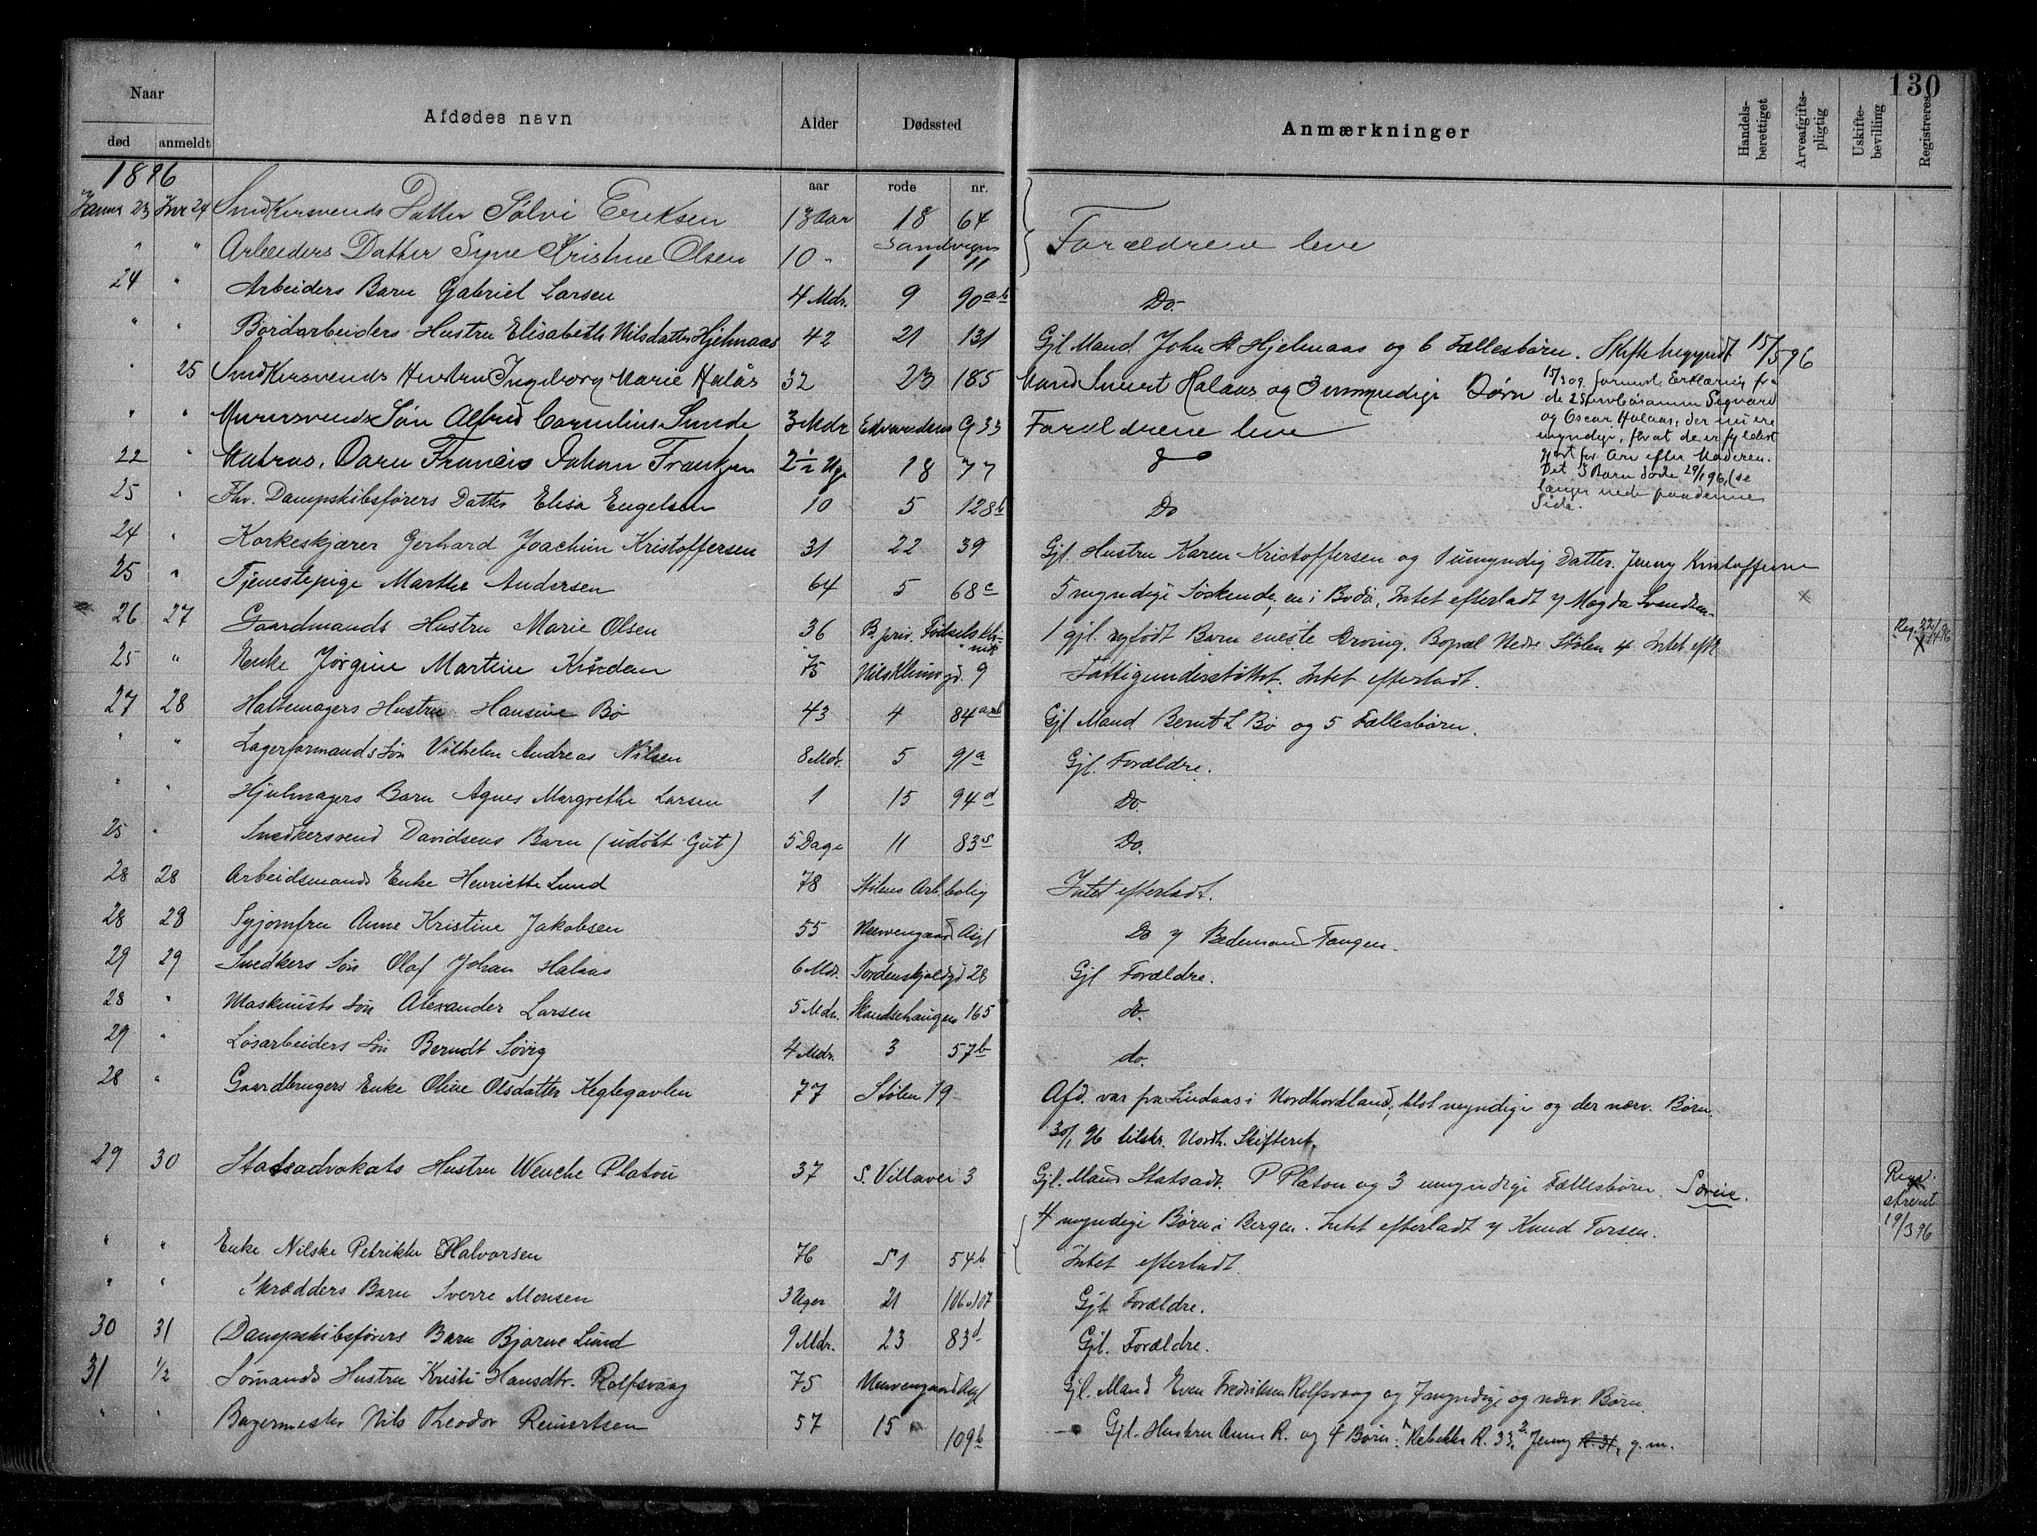 130
Naar
Afdødes navn
Alder
Dødssted
Anmærkninger
Handels-berettiget
Arveafgifts-pligtig
Uskifte-bevilling
Registreres
død anmeldt
aar rode nr.
1896
Januar 23 Jnr 24 Snedkersvends Datter Sølvi Eriksen 13 Aar 18 64
" " Arbeiders Datter Signe Kristine Olsen 10 " Sandvigen 1 11 Forældrene leve
24 " Arbeiders Barn Gabriel Larsen 4 Mdr. 9 90 a b Do.
" " Bordarbeiders Hustru Elisabeth Nilsdatter Hjelmaas 42 21 131 Gjl Mand John A Hjelmaas og 6 Fællesbørn. Skifte begyndt 15/5 96
" 25 Snedkersvends Hustru Ingeborg Marie Halås 32 23 185 Mand Sivert Halaas og 3 umyndige Børn
15/3 09. formndl. Erklæring fra
de 2 Stervbosønner Sigvard
og Oscar Halaas, der nu ere
myndige, for at de er fyldest
gjort for Arv efter Moderen.
Det 3 Barn døde 29/1 96, (se
længer nede paa denne
Side.
" " Murersvends Søn Alfred Cornelius Sunde 3 Mdr Edvardsens G 33 Forældrene leve
22 " Matros. Barn Francis Johan Frantzen 2½ Uge 18 77 Do
25 " Fhv. Dampskibsførers Datter Elisa Engelsen 10 5 128 b Do
24 " Korkeskjærer Gerhard Joachim Kristoffersen 31 22 39 Gjl. Hustru Karen Kristoffersen og 1 umyndig Datter. Jenny Kristoffersen
25 " Tjenestepige Marthe Andersen 64 5 68 c 5 myndige Søskende, en i Bodø. Intet efterladt / Magda Svendsen
26 27 Gaardmands Hustru Marie Olsen 36 B. priv. Fødselsklinik 1 gjl. nyfødt Barn eneste Arving. Bopæl Nedre Stølen 4. Intet eft.
25 " Enke Jørgine Martine 75 Nils Klims gd. 9 Fattigunderstøttet. Intet efterladt.
27 28 Hattemagers Hustru Hansine Bø 43 4 84 Gjl Mand Bernt L Bø og 5 Fællesbørn.
" " Lagerformands Søn Vilhelm Andreas Nilsen 8 Mdr. 5 91 a Gjl. Forældre.
" " Hjulmagers Barn Agnes Margrethe Larsen 1 15 94 d Do.
25 " Snedkersvend Davidsens Barn (udøbt Gut) 5 Dage 11 83 s Do.
28 28 Arbeidsmands Enke Henriette Lund 78 Stølens Arb.bolig Intet efterladt.
28 28 Syjomfru Anne Kristine Jakobsen 55 Neevengaard Asyl Do / Bedemand Tangen.
29 29 Snedkers Søn Olaf Johan Halaas 6 Mdr. Tordenskjoldsgd 28 Gjl Forældre.
28 " Maskinists Søn Alexander Larsen 5 Mdr. Skandsehaugen 165 do.
29 " Løsarbeiders Søn Berndt Søvig 4 Mdr. 3 57 b do.
28 " Gaardbrugers Enke Oline Olsdatter Keglegavlen 77 Stølen 19 Afd. var fra Lindaas i Nordhordland, blot myndige og der nærv. Børn.
30/1 96 tilskr. Nordh. Skifteret.
29 30 Statsadvokats Hustru Wenche Platou 37 S. Villavei 3 Gjl. Mand Statsadt. P Platou og 3 umyndige Fællesbørn.
4 myndige Børn i Bergen. Intet efterladt / Knud Torsen.
" " Enke Nilske Petrikke Halvorsen 76 S 1 54 b Intet efterladt.
" " Skrædders Barn Sverre Monsen 3 Uger 21 106 107 Gjl. Forældre.
30 31 Dampskibsførers Barn Bjarne Lund 9 Mdr. 23 83 d Gjl. Forældre.
31 1/2 Sømands Hustru Kristi Hansdtr. Rolfsvaag 75 Neevengaard Asyl Gjl. Mand Even Fredriksen Rolfsvaag og 7 myndige og nærv. Børn
" " Bagermester Nils Theodor Reinertsen 57 15 109 b Gjl. Hustru Anne R. og 4 Børn: 1 Rebekka R. 33, 2 Jenny R. 31, g.m.